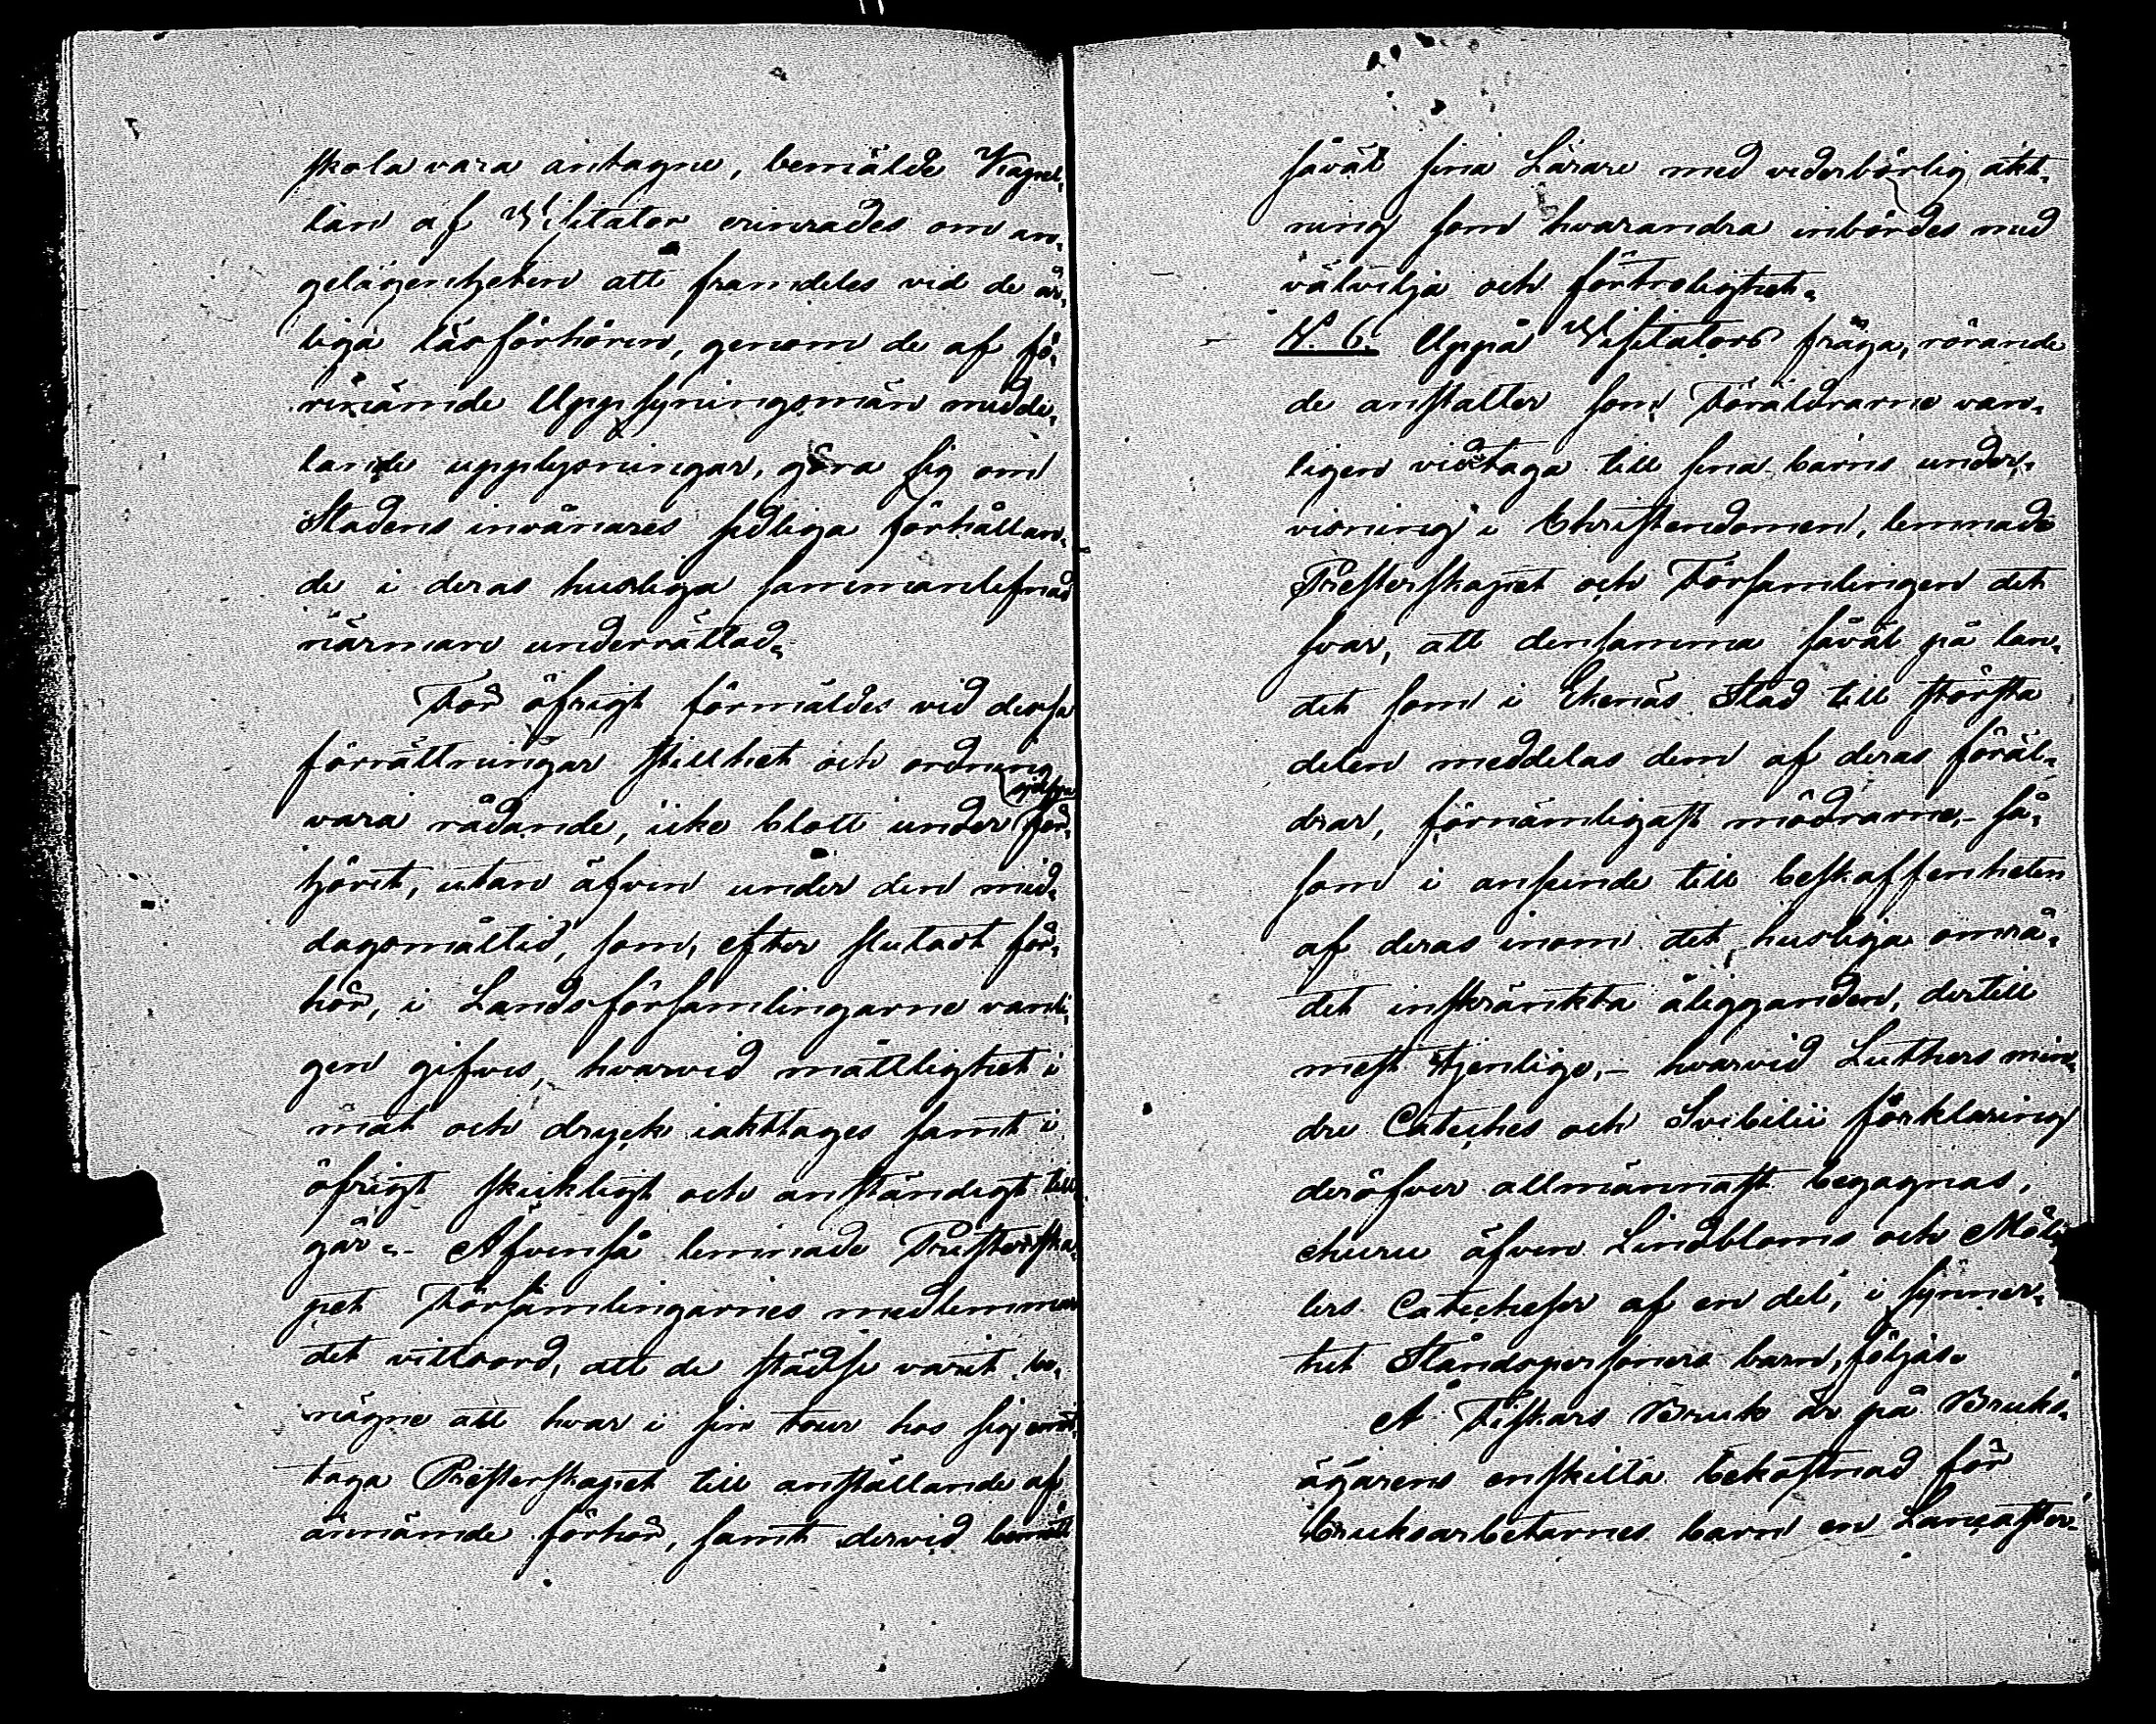 skola vara antagne, bemälde Kapel-
lan af Visitator erinrades om an-
gelägenheten att framdeles vid de år-
liga läsförhören, genom de af fö-
renämde Uppsyningsmän medde-
lande upplysningar, göra sig om
Stadens invånares sedliga förhållan-
de i deras husliga sammanlefnad
närmare underrättad.
För öfrigt förmäldes vid dessa
förrättningar stillhet och ordning
vara rådande, icke blott under sjelfva för-
höret, utan äfven under den mid-
dagsmåltid, som, efter slutadt för-
hör, i Landsförsamlingarne vanli-
gen gifves, hvarvid måttlighet i
mat och dryck iakttages samt i
öfrigt skickligt och anständigt till-
går. - Äfvenså lemnade Presterska-
pet Församlingarnes medlemmar
det vittsord, att de städse varit be-
nägne att hvar i sin tour hos sig emot-
taga Presterskapet till anställande af
ofvannämde förhör, samt dervid bemött
såväl sina Lärare med vederbörlig akt-
ning som hvarandra inbördes med
välvilja och förtrolighet.
N. 6. Uppå Visitators fråga, rörande
de anstalter som Föräldrarne van-
ligen vidtaga till sina barns under-
visning i Christendomen, lemnade
Presterskapet och Församlingen det
svar, att densamma såväl på lan-
det som i Ekenäs Stad till största
delen meddelas dem af deras föräl-
drar, förnämligast mödrarne,- så-
som i anseende till beskaffenheten
af deras inom det husliga områ-
det inskränkta åligganden, dertill
mest tjenlige,- hvarvid Luthers min-
dre Cateches och Svebilii förklaring
deröfver allmännast begagnas,
ehuru äfven Lindbloms och Möl-
lers Catecheser af en del, i synner-
het Ståndspersoners barn, följas.
Å Fiskars Bruk är på Bruks-
ägarens enskilta bekostnad för
Bruksarbetarnes barn en Lancaster-